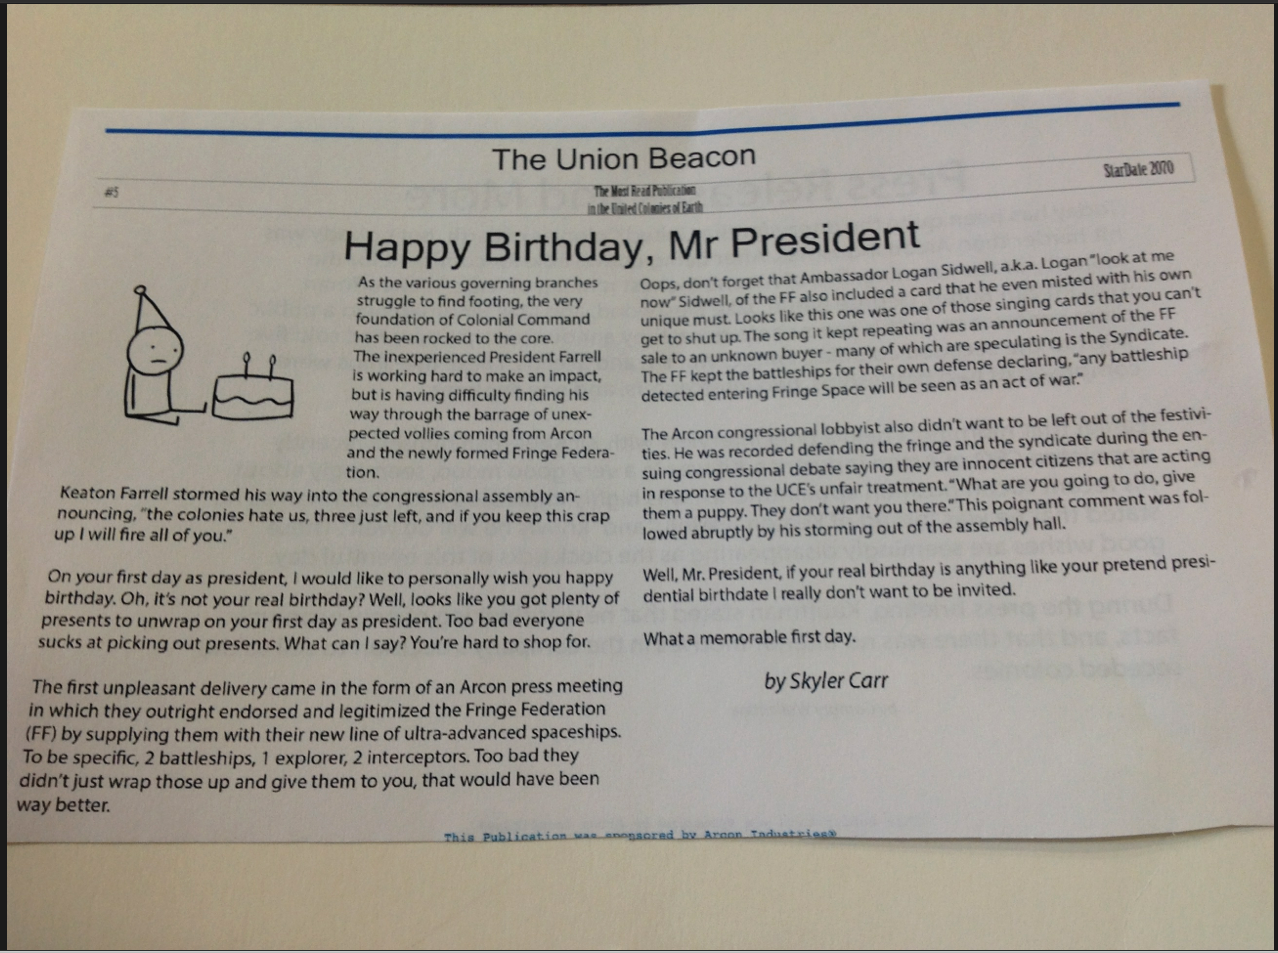 The Union Beacon
#5
The Most Read Publication
in the United Colonies of Earth
StarDate 2070
Happy Birthday, Mr President
As the various governing branches
struggle to find footing, the very
foundation of Colonial Command
has been rocked to the core.
The inexperienced President Farrell
is working hard to make an impact,
but is having difficulty finding his
way through the barrage of unex-
pected vollies coming from Arcon
and the newly formed Fringe Federa-
tion.
Keaton Farrell stormed his way into the congressional assembly an-
nouncing, "the colonies hate us, three just left, and if you keep this crap
up I will fire all of you."
On your first day as president, I would like to personally wish you happy
birthday. Oh, it's not your real birthday? Well, looks like you got plenty of
presents to unwrap on your first day as president. Too bad everyone
sucks at picking out presents. What can I say? You're hard to shop for.
The first unpleasant delivery came in the form of an Arcon press meeting
in which they outright endorsed and legitimized the Fringe Federation
(FF) by supplying them with their new line of ultra-advanced spaceships.
To be specific, 2 battleships, 1 explorer, 2 interceptors. Too bad they
didn't just wrap those up and give them to you, that would have been
way better.
Oops, don't forget that Ambassador Logan Sidwell, a.k.a. Logan "look at me
now" Sidwell, of the FF also included a card that he even misted with his own
unique must. Looks like this one was one of those singing cards that you can't
get to shut up. The song it kept repeating was an announcement of the FF
sale to an unknown buyer - many of which are speculating is the Syndicate.
The FF kept the battleships for their own defense declaring, "any battleship
detected entering Fringe Space will be seen as an act of war."
The Arcon congressional lobbyist also didn't want to be left out of the festivi-
ties. He was recorded defending the fringe and the syndicate during the en-
suing congressional debate saying they are innocent citizens that are acting
in response to the UCE's unfair treatment. "What are you going to do, give
them a puppy. They don't want you there." This poignant comment was fol-
lowed abruptly by his storming out of the assembly hall.
Well, Mr. President, if your real birthday is anything like your pretend presi-
dential birthdate I really don't want to be invited.
What a memorable first day.
by Skyler Carr
This Publication was sponsored by Arcon Industries®